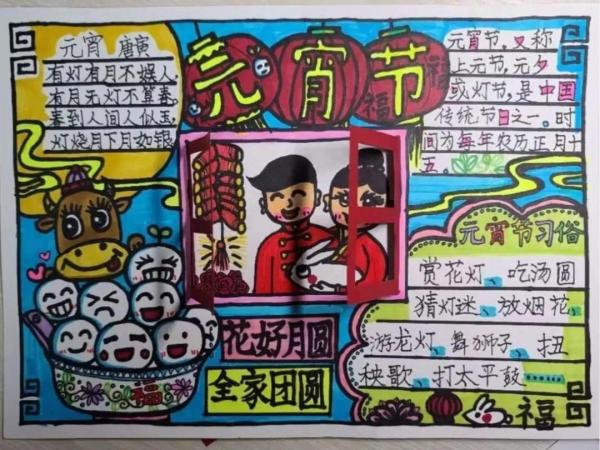 元宵 唐寅
有灯有月不娱人,
有月无灯不算春。
春到人间人似玉,
灯烧月下月如银
元宵节
福
福
元宵节,又称
上元节,元夕
或灯节,是中国
传统节日之一。时
间为每年农历正月十
五。
元宵节习俗
赏花灯、吃汤圆
猜灯迷、放烟花、
游龙灯、舞狮子、扭
秧歌、打太平鼓……
福
花好月圆
全家团圆
福